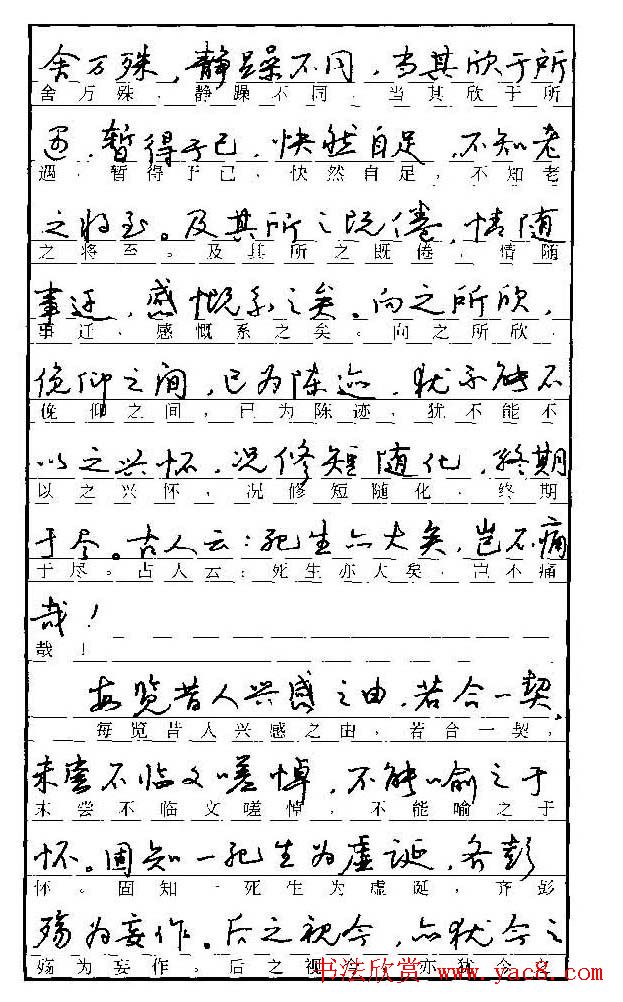 舍万殊，静躁不同，当其欣于所
舍万殊，静躁不同，当其欣于所
遇，暂得于已，快然自足，不知老
遇，暂得于已，快然自足，不知老
之将至。及其所之既倦，情随
之将至。及其所之既倦，情随
事迁，感慨系之矣。向之所欣，
事迁，感慨系之矣。向之所欣，
俛仰之间，已为陈迹，犹不能不
俛仰之间，已为陈迹，犹不能不
以之兴怀，况修短随化，终期
以之兴怀，况修短随化，终期
于尽。古人云：死生亦大矣，岂不痛
于尽。古人云：死生亦大矣，岂不痛
哉！
哉！
每览昔人兴感之由，若合一契，
每览昔人兴感之由，若合一契，
未尝不临文嗟悼，不能喻之于
未尝不临文嗟悼，不能喻之于
怀。固知一死生为虚诞，齐彭
怀。固知一死生为虚诞，齐彭
殇为妄作。后之视今，亦犹今之
殇为妄作。后之视今，亦犹今之
书法欣赏 www.yac8.com